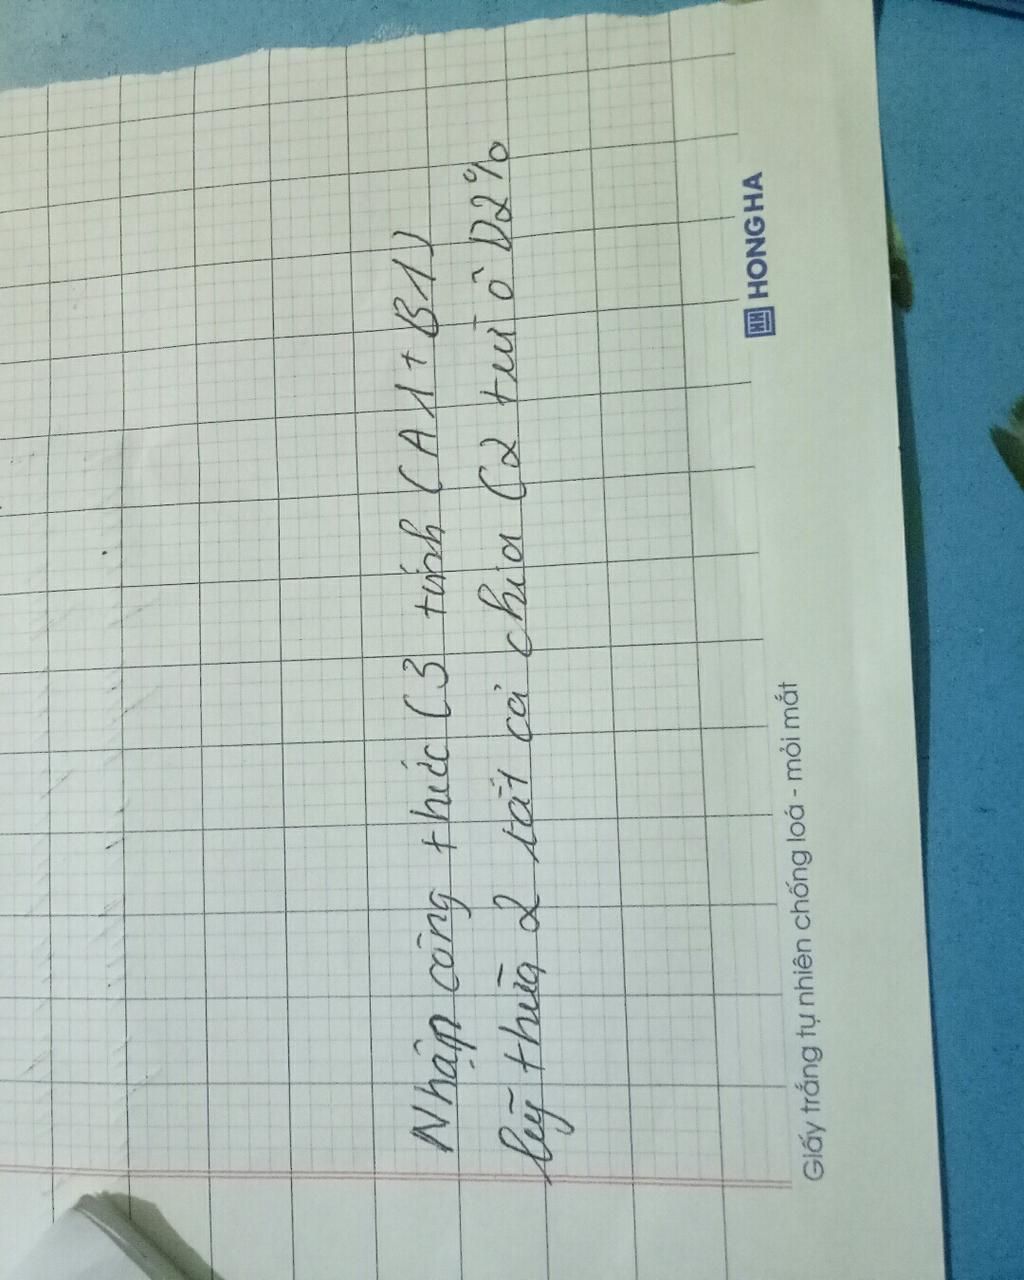 Nhập công thức C3 tính (A1+B1)
luỹ thừa 2 tất cả chia C2 trừ ô D2%
HONG HA
Giấy trắng tự nhiên chống loá - mỏi mắt